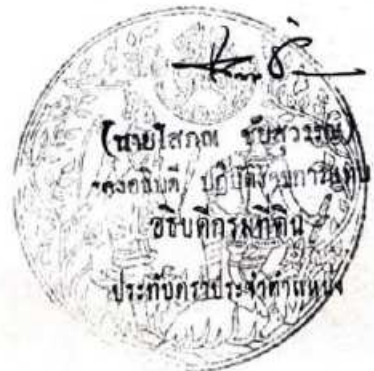 (นายโสภณ ชัยสุวรรณ)
รองอธิบดี ปฏิบัติราชการแทน
อธิบดีกรมที่ดิน
ประทับตราประจำตำแหน่ง